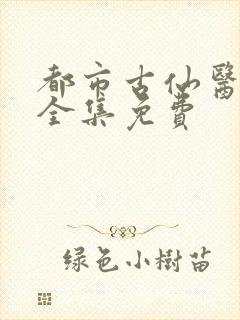 都市古仙醫
全集免費
绿色小樹苗